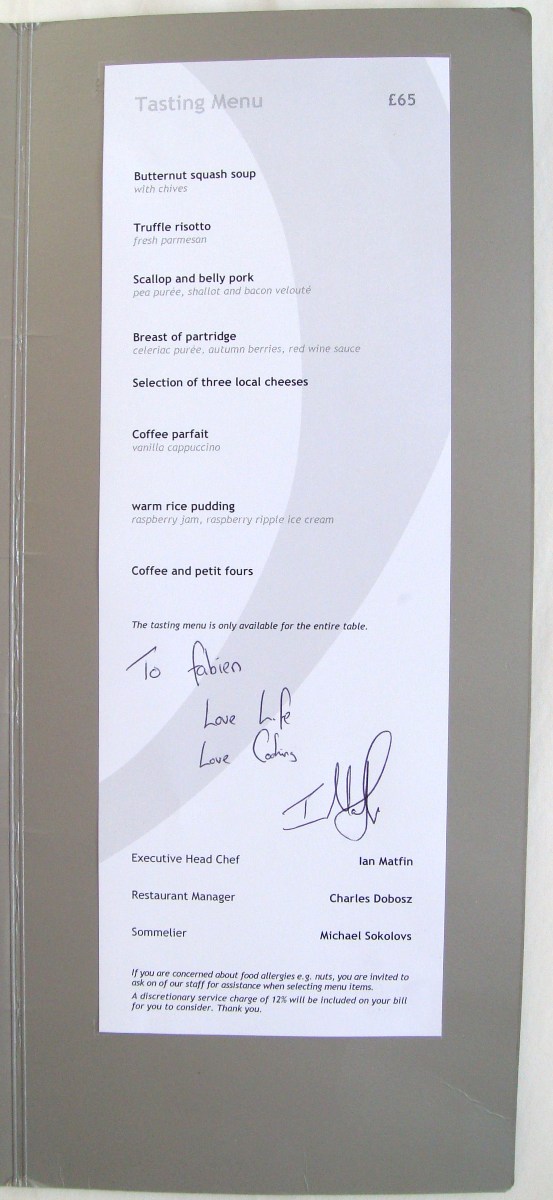 Tasting Menu £65
Butternut squash soup
with chives
Truffle risotto
fresh parmesan
Scallop and belly pork
pea purée, shallot and bacon velouté
Breast of partridge
celeriac purée, autumn berries, red wine sauce
Selection of three local cheeses
Coffee parfait
vanilla cappuccino
warm rice pudding
raspberry jam, raspberry ripple ice cream
Coffee and petit fours
The tasting menu is only available for the entire table.
To fabien
Love Life
Love Cooking
Executive Head Chef Ian Matfin
Restaurant Manager Charles Dobosz
Sommelier Michael Sokolovs
If you are concerned about food allergies e.g. nuts, you are invited to
ask on of our staff for assistance when selecting menu items.
A discretionary service charge of 12% will be included on your bill
for you to consider. Thank you.